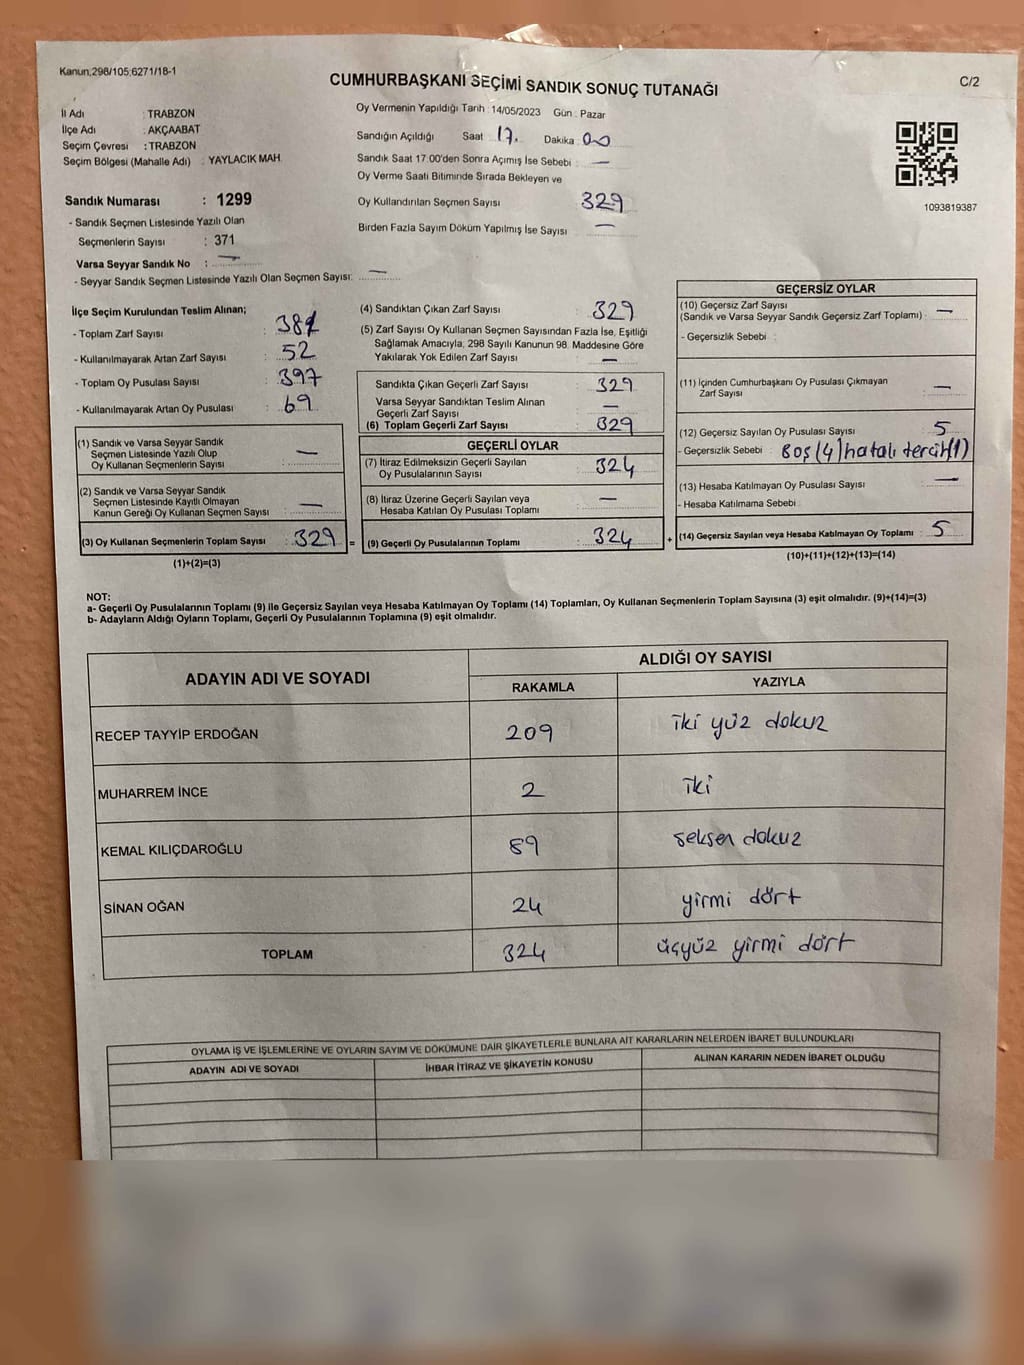 Kanun;298/105;6271/18-1
CUMHURBAŞKANI SEÇİMİ SANDIK SONUÇ TUTANAĞI
C/2
İl Adı : TRABZON
İlçe Adı : AKÇAABAT
Seçim Çevresi : TRABZON
Seçim Bölgesi (Mahalle Adı) : YAYLACIK MAH.
Oy Vermenin Yapıldığı Tarih : 14/05/2023 Gün : Pazar
Sandığın Açıldığı Saat : 17. Dakika : 00
Sandık Saat 17.00'den Sonra Açımış İse Sebebi : —
Oy Verme Saati Bitiminde Sırada Bekleyen ve
Oy Kullandırılan Seçmen Sayısı : 329
Birden Fazla Sayım Döküm Yapılmış İse Sayısı : —
1093819387
Sandık Numarası : 1299
- Sandık Seçmen Listesinde Yazılı Olan
Seçmenlerin Sayısı : 371
Varsa Seyyar Sandık No : —
- Seyyar Sandık Seçmen Listesinde Yazılı Olan Seçmen Sayısı: —
İlçe Seçim Kurulundan Teslim Alınan;
- Toplam Zarf Sayısı :
- Kullanılmayarak Artan Zarf Sayısı : 52
- Toplam Oy Pusulası Sayısı : 397
- Kullanılmayarak Artan Oy Pusulası : 69
(1) Sandık ve Varsa Seyyar Sandık
Seçmen Listesinde Yazılı Olup
Oy Kullanan Seçmenlerin Sayısı : —
(2) Sandık ve Varsa Seyyar Sandık
Seçmen Listesinde Kayıtlı Olmayan
Kanun Gereği Oy Kullanan Seçmen Sayısı : —
(3) Oy Kullanan Seçmenlerin Toplam Sayısı : 329 =
(1)+(2)=(3)
(4) Sandıktan Çıkan Zarf Sayısı : 329
(5) Zarf Sayısı Oy Kullanan Seçmen Sayısından Fazla İse, Eşitliği
Sağlamak Amacıyla, 298 Sayılı Kanunun 98. Maddesine Göre
Yakılarak Yok Edilen Zarf Sayısı : —
Sandıkta Çıkan Geçerli Zarf Sayısı : 329
Varsa Seyyar Sandıktan Teslim Alınan
Geçerli Zarf Sayısı : —
(6) Toplam Geçerli Zarf Sayısı : 329
GEÇERLİ OYLAR
(7) İtiraz Edilmeksizin Geçerli Sayılan
Oy Pusulalarının Sayısı : 324
(8) İtiraz Üzerine Geçerli Sayılan veya
Hesaba Katılan Oy Pusulası Toplamı : —
(9) Geçerli Oy Pusulalarının Toplamı : 324 +
GEÇERSİZ OYLAR
(10) Geçersiz Zarf Sayısı
(Sandık ve Varsa Seyyar Sandık Geçersiz Zarf Toplamı) : —
- Geçersizlik Sebebi :
(11) İçinden Cumhurbaşkanı Oy Pusulası Çıkmayan
Zarf Sayısı : —
(12) Geçersiz Sayılan Oy Pusulası Sayısı : 5
- Geçersizlik Sebebi : Boş (4) hatalı tercih(1)
(13) Hesaba Katılmayan Oy Pusulası Sayısı : —
- Hesaba Katılmama Sebebi :
(14) Geçersiz Sayılan veya Hesaba Katılmayan Oy Toplamı : 5
(10)+(11)+(12)+(13)=(14)
NOT:
a- Geçerli Oy Pusulalarının Toplamı (9) ile Geçersiz Sayılan veya Hesaba Katılmayan Oy Toplamı (14) Toplamları, Oy Kullanan Seçmenlerin Toplam Sayısına (3) eşit olmalıdır. (9)+(14)=(3)
b- Adayların Aldığı Oyların Toplamı, Geçerli Oy Pusulalarının Toplamına (9) eşit olmalıdır.
ADAYIN ADI VE SOYADI
ALDIĞI OY SAYISI
RAKAMLA YAZIYLA
RECEP TAYYİP ERDOĞAN 209 iki yüz dokuz
MUHARREM İNCE 2 iki
KEMAL KILIÇDAROĞLU 89 seksen dokuz
SİNAN OĞAN 24 yirmi dört
TOPLAM 324 üçyüz yirmi dört
OYLAMA İŞ VE İŞLEMLERİNE VE OYLARIN SAYIM VE DÖKÜMÜNE DAİR ŞİKAYETLERLE BUNLARA AİT KARARLARIN NELERDEN İBARET BULUNDUKLARI
ADAYIN ADI VE SOYADI İHBAR İTİRAZ VE ŞİKAYETİN KONUSU ALINAN KARARIN NEDEN İBARET OLDUĞU